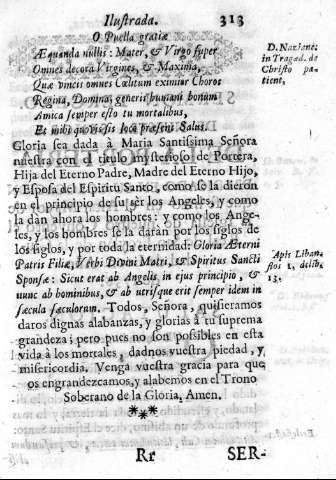 Ilustrada. 313
O Puella gratiæ
Æquanda nullis: Mater, & Virgo super
Omnes decora Virgines, & Maxima,
Quæ vincis omnes Cœlitum eximiur Choros
Regina, Domina, generis humani bonum
Amica semper esto tu mortalibus,
Et mihi quovis loco præsens Salus.
D. Nazianc.
in Tragad. de
Christo pa-
tient.
Gloria sea dada à Maria Santissima Señora
nuestra con el titulo mysterioso de Portera,
Hija del Eterno Padre, Madre del Eterno Hijo,
y Esposa del Espiritu Santo, como se la dieron
en el principio de su sèr los Angeles, y como
la dàn ahora los hombres: y como los Ange-
les, y los hombres se la daràn por los siglos de
los siglos, y por toda la eternidad: Gloria Æterni
Patris Filiæ, Verbi Divini Matri, & Spiritus Sancti
Sponsæ: Sicut erat ab Angelis in ejus principio, &
nunc ab hominibus, & ab utrisque erit semper idem in
sæcula sæculorum. Todos, Señora, quisieramos
daros dignas alabanzas, y glorias à tu suprema
grandeza; pero pues no son possibles en esta
vida à los mortales, dadnos vuestra piedad, y
misericordia. Venga vuestra gracia para que
os engrandezcamos, y alabemos en el Trono
Soberano de la Gloria. Amen.
Apis Liban-
13.
***
Rr SER-